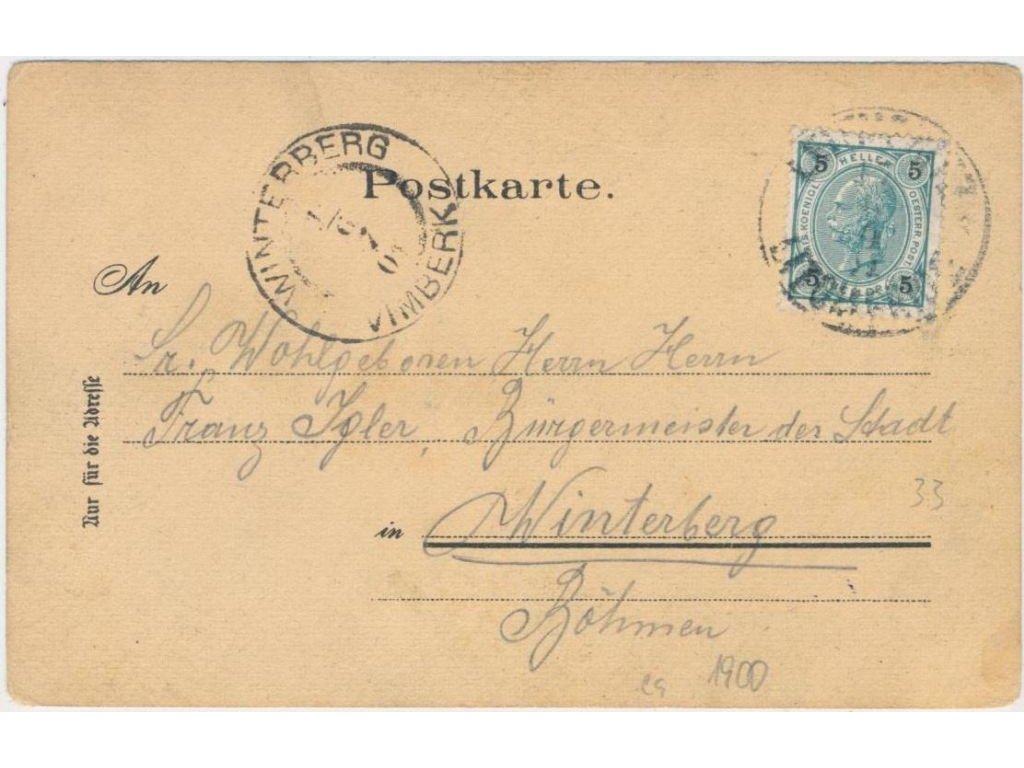 Postkarte.
WINTERBERG
VIMBERK
5 HELLER 5
5 5
An
Sr. Wohlgeboren Herrn Herrn
Franz Igler, Bürgermeister der Stadt
33
in Winterberg
Böhmen
ca 1900
Nur für die Adresse